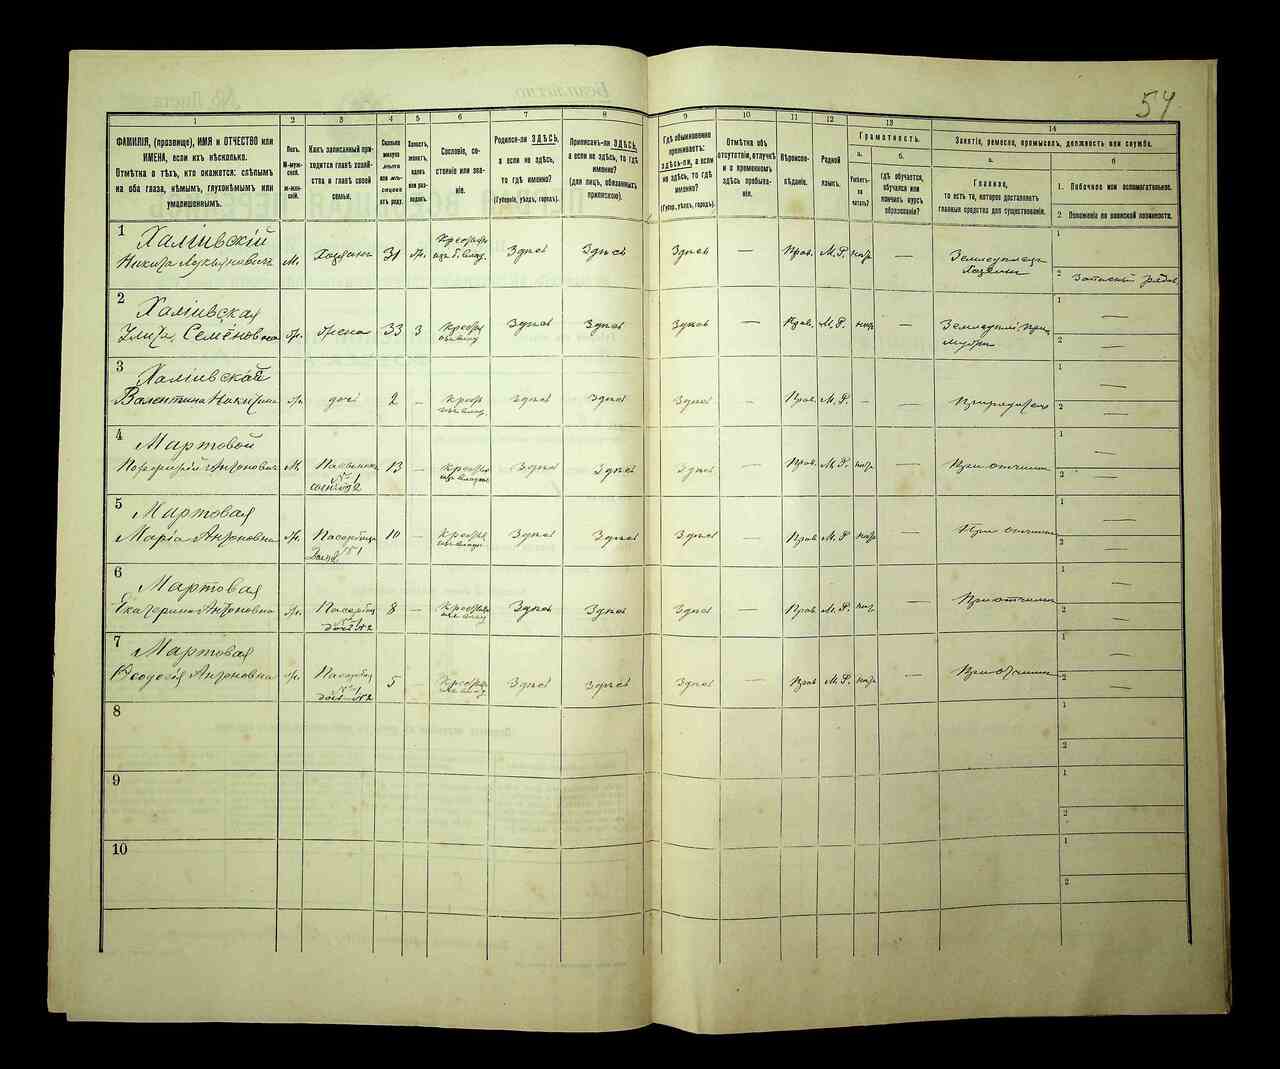 54
1 2 3 4 5 6 7 8 9 10 11 12 13 14
ФАМИЛІЯ, (прозвище), ИМЯ и ОТЧЕСТВО или
ИМЕНА, если ихъ нѣсколько.
Отмѣтка о тѣхъ, кто окажется: слѣпымъ
на оба глаза, нѣмымъ, глухонѣмымъ или
умалишеннымъ.
Полъ.
М-мужской.
Ж-женскій.
Какъ записанный приходится главѣ хозяйства и главѣ своей семьи.
Сколько минуло лѣтъ или мѣсяцевъ отъ роду.
Холостъ, женатъ, вдовъ или разведенъ.
Сословіе, состояніе или званіе.
Родился-ли ЗДѢСЬ,
а если не здѣсь,
то гдѣ именно?
(Губернія, уѣздъ, городъ).
Приписанъ-ли ЗДѢСЬ,
а если не здѣсь, то гдѣ
именно?
(для лицъ, обязанныхъ
припискою).
Гдѣ обыкновенно
проживаетъ:
здѣсь-ли, а если
не здѣсь, то гдѣ
именно?
(Губер., уѣздъ, городъ).
Отмѣтка объ
отсутствіи, отлучкѣ
и о временномъ
здѣсь пребываніи.
Вѣроисповѣданіе.
Родной
языкъ.
Грамотность.
а.
Умѣетъ-ли читать?
б.
гдѣ обучается,
обучался или
кончилъ курсъ
образованія?
Занятіе, ремесло, промыселъ, должность или служба.
а.
Главное,
то есть то, которое доставляетъ
главныя средства для существованія.
б
1. Побочное или вспомогательное.
2 Положеніе по воинской повинности.
1
Халіивскій
Никита Лукьяновичъ М. Хозяинъ 31 Ж. Здѣсь Здѣсь Здѣсь — Прав. М.Р. —
1
2 Запасный рядов.
2
Халіивская
Семёновна Ж. жена 33 З Здѣсь Здѣсь Здѣсь — Прав. М.Р. —
1 —
2 —
3
Халіивская
Валентина Никитина Ж. дочь 2 — Здѣсь Здѣсь Здѣсь — Прав. М.Р. — —
1 —
2 —
4
Мартовой
Порфирій Антоновичъ М. 13 — Здѣсь Здѣсь Здѣсь — Прав. М.Р. — При отчимѣ
1 —
2 —
5
Мартовая
Марія Антоновна Ж. 10 — Здѣсь Здѣсь Здѣсь — Прав. М.Р. — При отчимѣ
1 —
2 —
6
Мартовая
Екатерина Антоновна Ж. 8 — Здѣсь Здѣсь Здѣсь — Прав. М.Р. — При отчимѣ
1 —
2 —
7
Мартовая
Ѳеодосія Антоновна Ж. 5 — Здѣсь Здѣсь Здѣсь — Прав. М.Р. — При отчимѣ
1 —
2 —
8
1
2
9
1
2
10
1
2